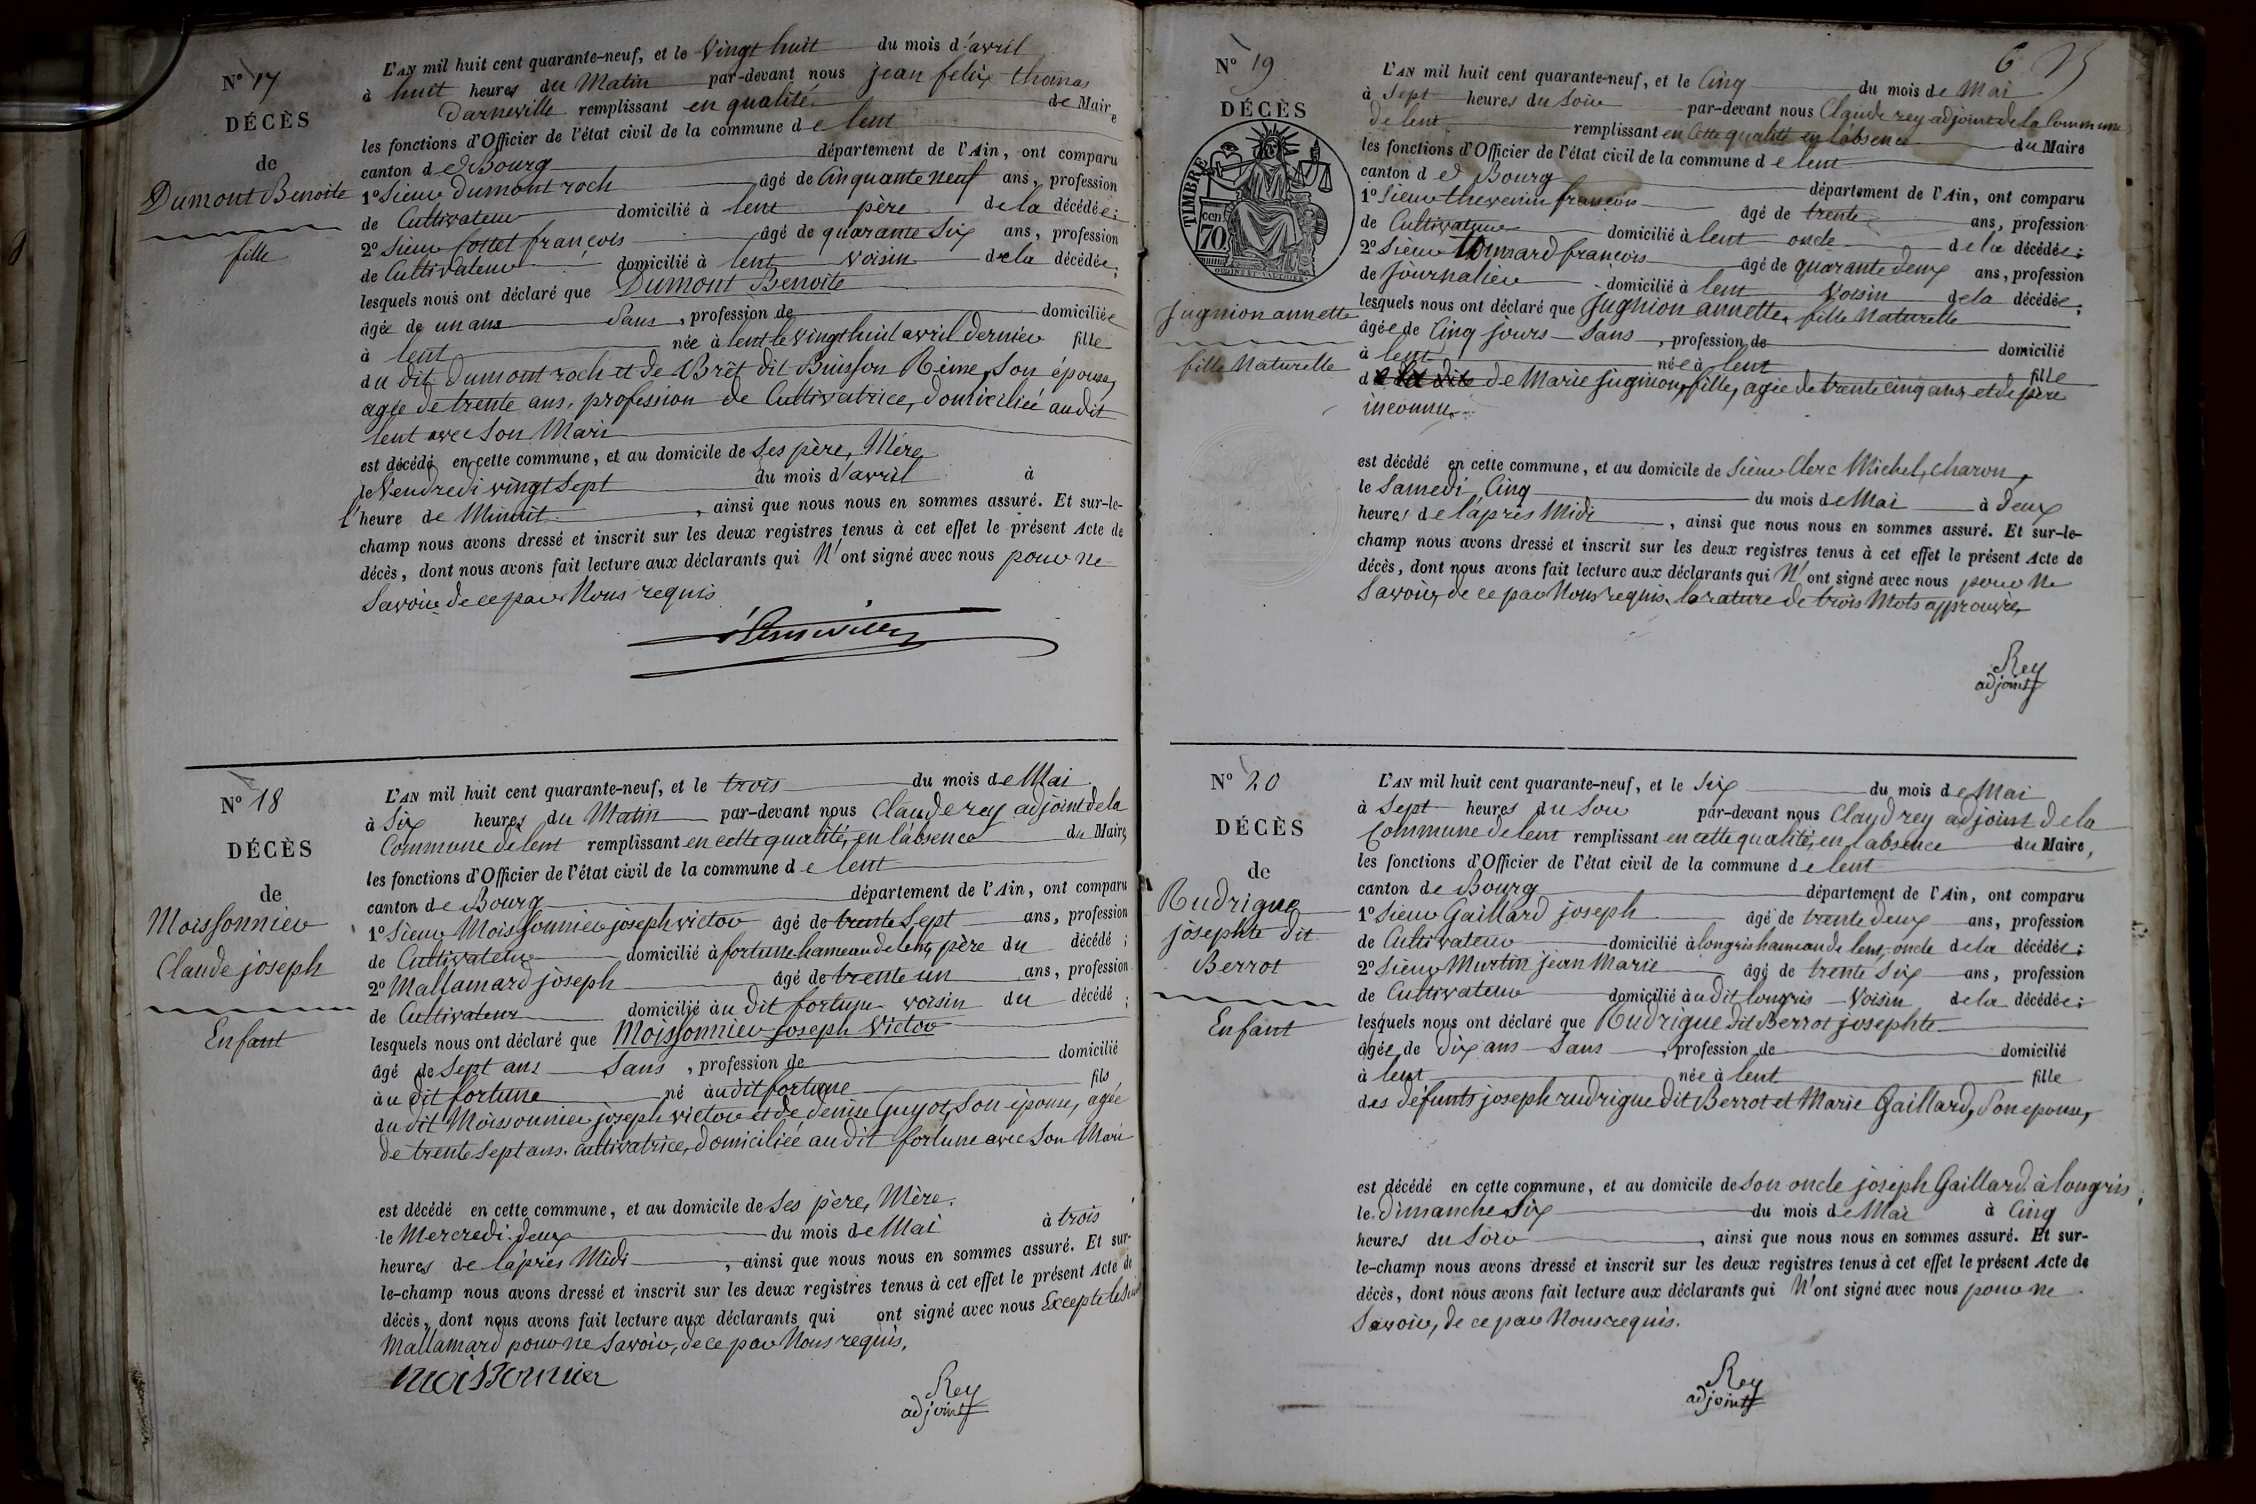 N° 17
DÉCÈS
de
Dumont Benoite
fille
L'AN mil huit cent quarante-neuf, et le Vingt huit du mois d'avril
à huit heures du Matin par-devant nous Jean felix thomas
Darneville remplissant en qualité de Maire
les fonctions d'Officier de l'état civil de la commune de lent
canton de Bourg département de l'Ain, ont comparu
1° Sieur dumont roch âgé de Cinquante neuf ans, profession
de Cultivateur domicilié à lent père de la décédée;
2° Sieur Cottet françois âgé de quarante Six ans, profession
de Cultivateur domicilié à lent voisin de la décédée;
lesquels nous ont déclaré que Dumont Benoite
âgée de un ans Sans, profession de domiciliée
à lent née à lent le Vingt huit avril dernier fille
du dit dumont roch et de Brêt dit Buisson Reine, Son épouse,
agée de trente ans, profession de Cultivatrice, domiciliée au dit
lent avec Son Mari
est décédé en cette commune, et au domicile de Ses père, Mère
le Vendredi vingt Sept du mois d'avril à
l'heure de Minuit, ainsi que nous nous en sommes assuré. Et sur-le-
champ nous avons dressé et inscrit sur les deux registres tenus à cet effet le présent Acte de
décès, dont nous avons fait lecture aux déclarants qui N'ont signé avec nous pour ne
Savoir de ce par Nous requis
N° 18
DÉCÈS
de
Moissonnier
Claude joseph
Enfant
L'AN mil huit cent quarante-neuf, et le trois du mois de Mai
à Six heures du Matin par-devant nous Claude rey adjoint de la
Commune de lent remplissant en cette qualité, en l'absence du Maire,
les fonctions d'Officier de l'état civil de la commune de lent
canton de Bourg département de l'Ain, ont comparu
1° Sieur Moissonnier joseph victor âgé de trente Sept ans, profession
de Cultivateur domicilié à fortune hameau de lent, père du décédé;
2° Mallamard joseph âgé de trente un ans, profession
de Cultivateur domicilié àu dit fortune voisin du décédé;
lesquels nous ont déclaré que Moissonnier joseph Victor
âgé de Sept ans Sans, profession de domicilié
àu dit fortune né àu dit fortune fils
du dit Moissonnier joseph victor et de denise Guyot, Son épouse, agée
de trente Sept ans. Cultivatrice, domiciliée au dit fortune avec Son Mari
est décédé en cette commune, et au domicile de Ses père, Mère.
le Mercredi deux du mois de Mai à trois
heures de l'après Midi, ainsi que nous nous en sommes assuré. Et sur-
le-champ nous avons dressé et inscrit sur les deux registres tenus à cet effet le présent Acte de
décès, dont nous avons fait lecture aux déclarants qui ont signé avec nous Excepté le
Mallamard pour ne Savoir, de ce par Nous requis.
Moissonnier
Rey
adjoint
6
N° 19
DÉCÈS
TIMBRE
cen
70
Jugnion annette
fille Naturelle
L'AN mil huit cent quarante-neuf, et le Cinq du mois de Mai
à Sept heures du Soir par-devant nous Claude rey adjoint de la Commune
de lent remplissant en cette qualité en l'absence du Maire
les fonctions d'Officier de l'état civil de la commune de lent
canton de Bourg département de l'Ain, ont comparu
1° Sieur thevenin françois âgé de trente ans, profession
de Cultivateur domicilié à lent oncle de la décédée;
2° Sieur françois âgé de quarante deux ans, profession
de Journalier domicilié à lent Voisin de la décédée;
lesquels nous ont déclaré que Jugnion annette, fille Naturelle
âgée de Cinq jours Sans, profession de domicilié
à lent née à lent fille
de Marie Jugnion, fille, agée de trente cinq ans, et de père
inconnu.
est décédé en cette commune, et au domicile de Sieur Clerc Michel, charon,
le Samedi Cinq du mois de Mai à deux
heures de l'après Midi, ainsi que nous nous en sommes assuré. Et sur-le-
champ nous avons dressé et inscrit sur les deux registres tenus à cet effet le présent Acte de
décès, dont nous avons fait lecture aux déclarants qui N'ont signé avec nous pour ne
Savoir, de ce par Nous requis, la rature de trois Mots approuvée,
Rey
adjoint
N° 20
DÉCÈS
de
Rudrigue
josephte dit
Berrot
Enfant
L'AN mil huit cent quarante-neuf, et le Six du mois de Mai
à Sept heures du Soir par-devant nous Claud rey adjoint de la
Commune de lent remplissant en cette qualité, en l'absence du Maire,
les fonctions d'Officier de l'état civil de la commune de lent
canton de Bourg département de l'Ain, ont comparu
1° Sieur Gaillard joseph âgé de trente deux ans, profession
de Cultivateur domicilié à longris hameau de lent, oncle de la décédée;
2° Sieur Murtin jean Marie âgé de trente Six ans, profession
de Cultivateur domicilié àu dit longris Voisin de la décédée;
lesquels nous ont déclaré que Rudrigue dit Berrot josephte
âgée de dix ans Sans, profession de domicilié
à lent née à lent fille
des défunts joseph rudrigue dit Berrot et Marie Gaillard, Son epouse,
est décédé en cette commune, et au domicile de Son oncle joseph Gaillard à longris;
le dimanche Six du mois de Mai à Cinq
heures du Soir, ainsi que nous nous en sommes assuré. Et sur-
le-champ nous avons dressé et inscrit sur les deux registres tenus à cet effet le présent Acte de
décès, dont nous avons fait lecture aux déclarants qui N'ont signé avec nous pour ne
Savoir, de ce par Nous requis.
Rey
adjoint